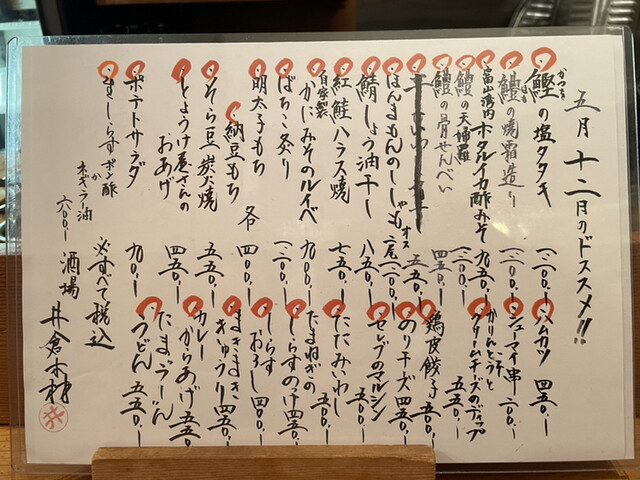 五月十二日のドススメ!!
鰹の塩タタキ 一二〇〇.-
かつを
鱧の焼霜造り 一二〇〇.-
はも
富山湾内 ホタルイカ酢みそ 九五〇.-
鱧の天婦羅 一二〇〇.-
鱧の骨せんべい 四五〇.-
ほんまもんのししゃも オス 二尾 一二〇〇.-
鯖しょう油干し 八五〇.-
紅鮭ハラス焼 七五〇.-
自家製 かにみそのルイベ 九〇〇.-
ばちこ炙り 一二〇〇.-
明太子もち
納豆もち 各 四〇〇.-
そら豆炭火焼 五五〇.-
とようけ屋さんの
おあげ 四五〇.-
ポテトサラダ 九〇.-
生しらす ポン酢
か
ネギラー油
六〇〇.-
ハムカツ 四五〇.-
シューマイ串 二〇〇.-
かりんとうと
クリームチーズのディップ 五五〇.-
鶏皮餃子 五〇〇.-
のりチーズ 四五〇.-
セレブのマルシン 五〇〇.-
たたみいわし 五〇〇.-
たまねぎの
しらすのっけ 四五〇.-
しらす
おろし 四〇〇.-
まきまき
きゅうり 四五〇.-
カレー
からあげ 五五〇.-
たまごうどん
うどん 五五〇.-
※すべて税込
酒場 井倉木材